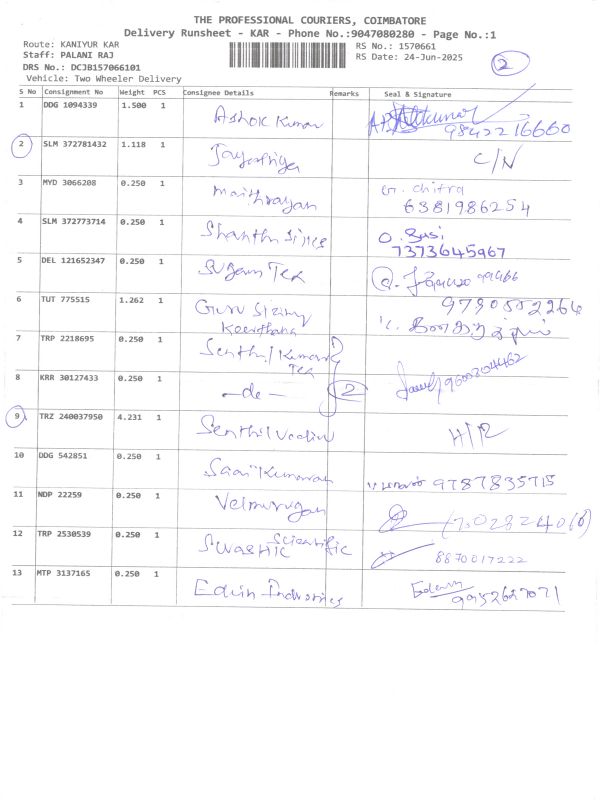 THE PROFESSIONAL COURIERS, COIMBATORE
Delivery Runsheet - KAR - Phone No.:9047080280 - Page No.:1
Route: KANIYUR KAR
RS No.: 1570661
Staff: PALANI RAJ
RS Date: 24-Jun-2025
2
DRS No.: DCJB157066101
Vehicle: Two Wheeler Delivery
S No Consignment No Weight PCS Consignee Details Remarks Seal & Signature
1 DDG 1094339 1.500 1 Ashok Kumar 9842216660
2 SLM 372781432 1.118 1 C/N
3 MYD 3066208 0.250 1 Maithrayan G. chitra
6381986254
4 SLM 372773714 0.250 1 Shanthi O. Sasi
7373645967
5 DEL 121652347 0.250 1 Sugam Tex
6 TUT 775515 1.262 1 Guru 9790552264
Keerthana
7 TRP 2218695 0.250 1 Senthil Kumaran
Tex
8 KRR 30127433 0.250 1 -do- 2 9600204462
9 TRZ 240037950 4.231 1 Senthil H/R
10 DDG 542851 0.250 1 9787835715
11 NDP 22259 0.250 1 Velmurugan
12 TRP 2530539 0.250 1 Swastic Scientific 8870017222
13 MTP 3137165 0.250 1 Edwin 9952627071